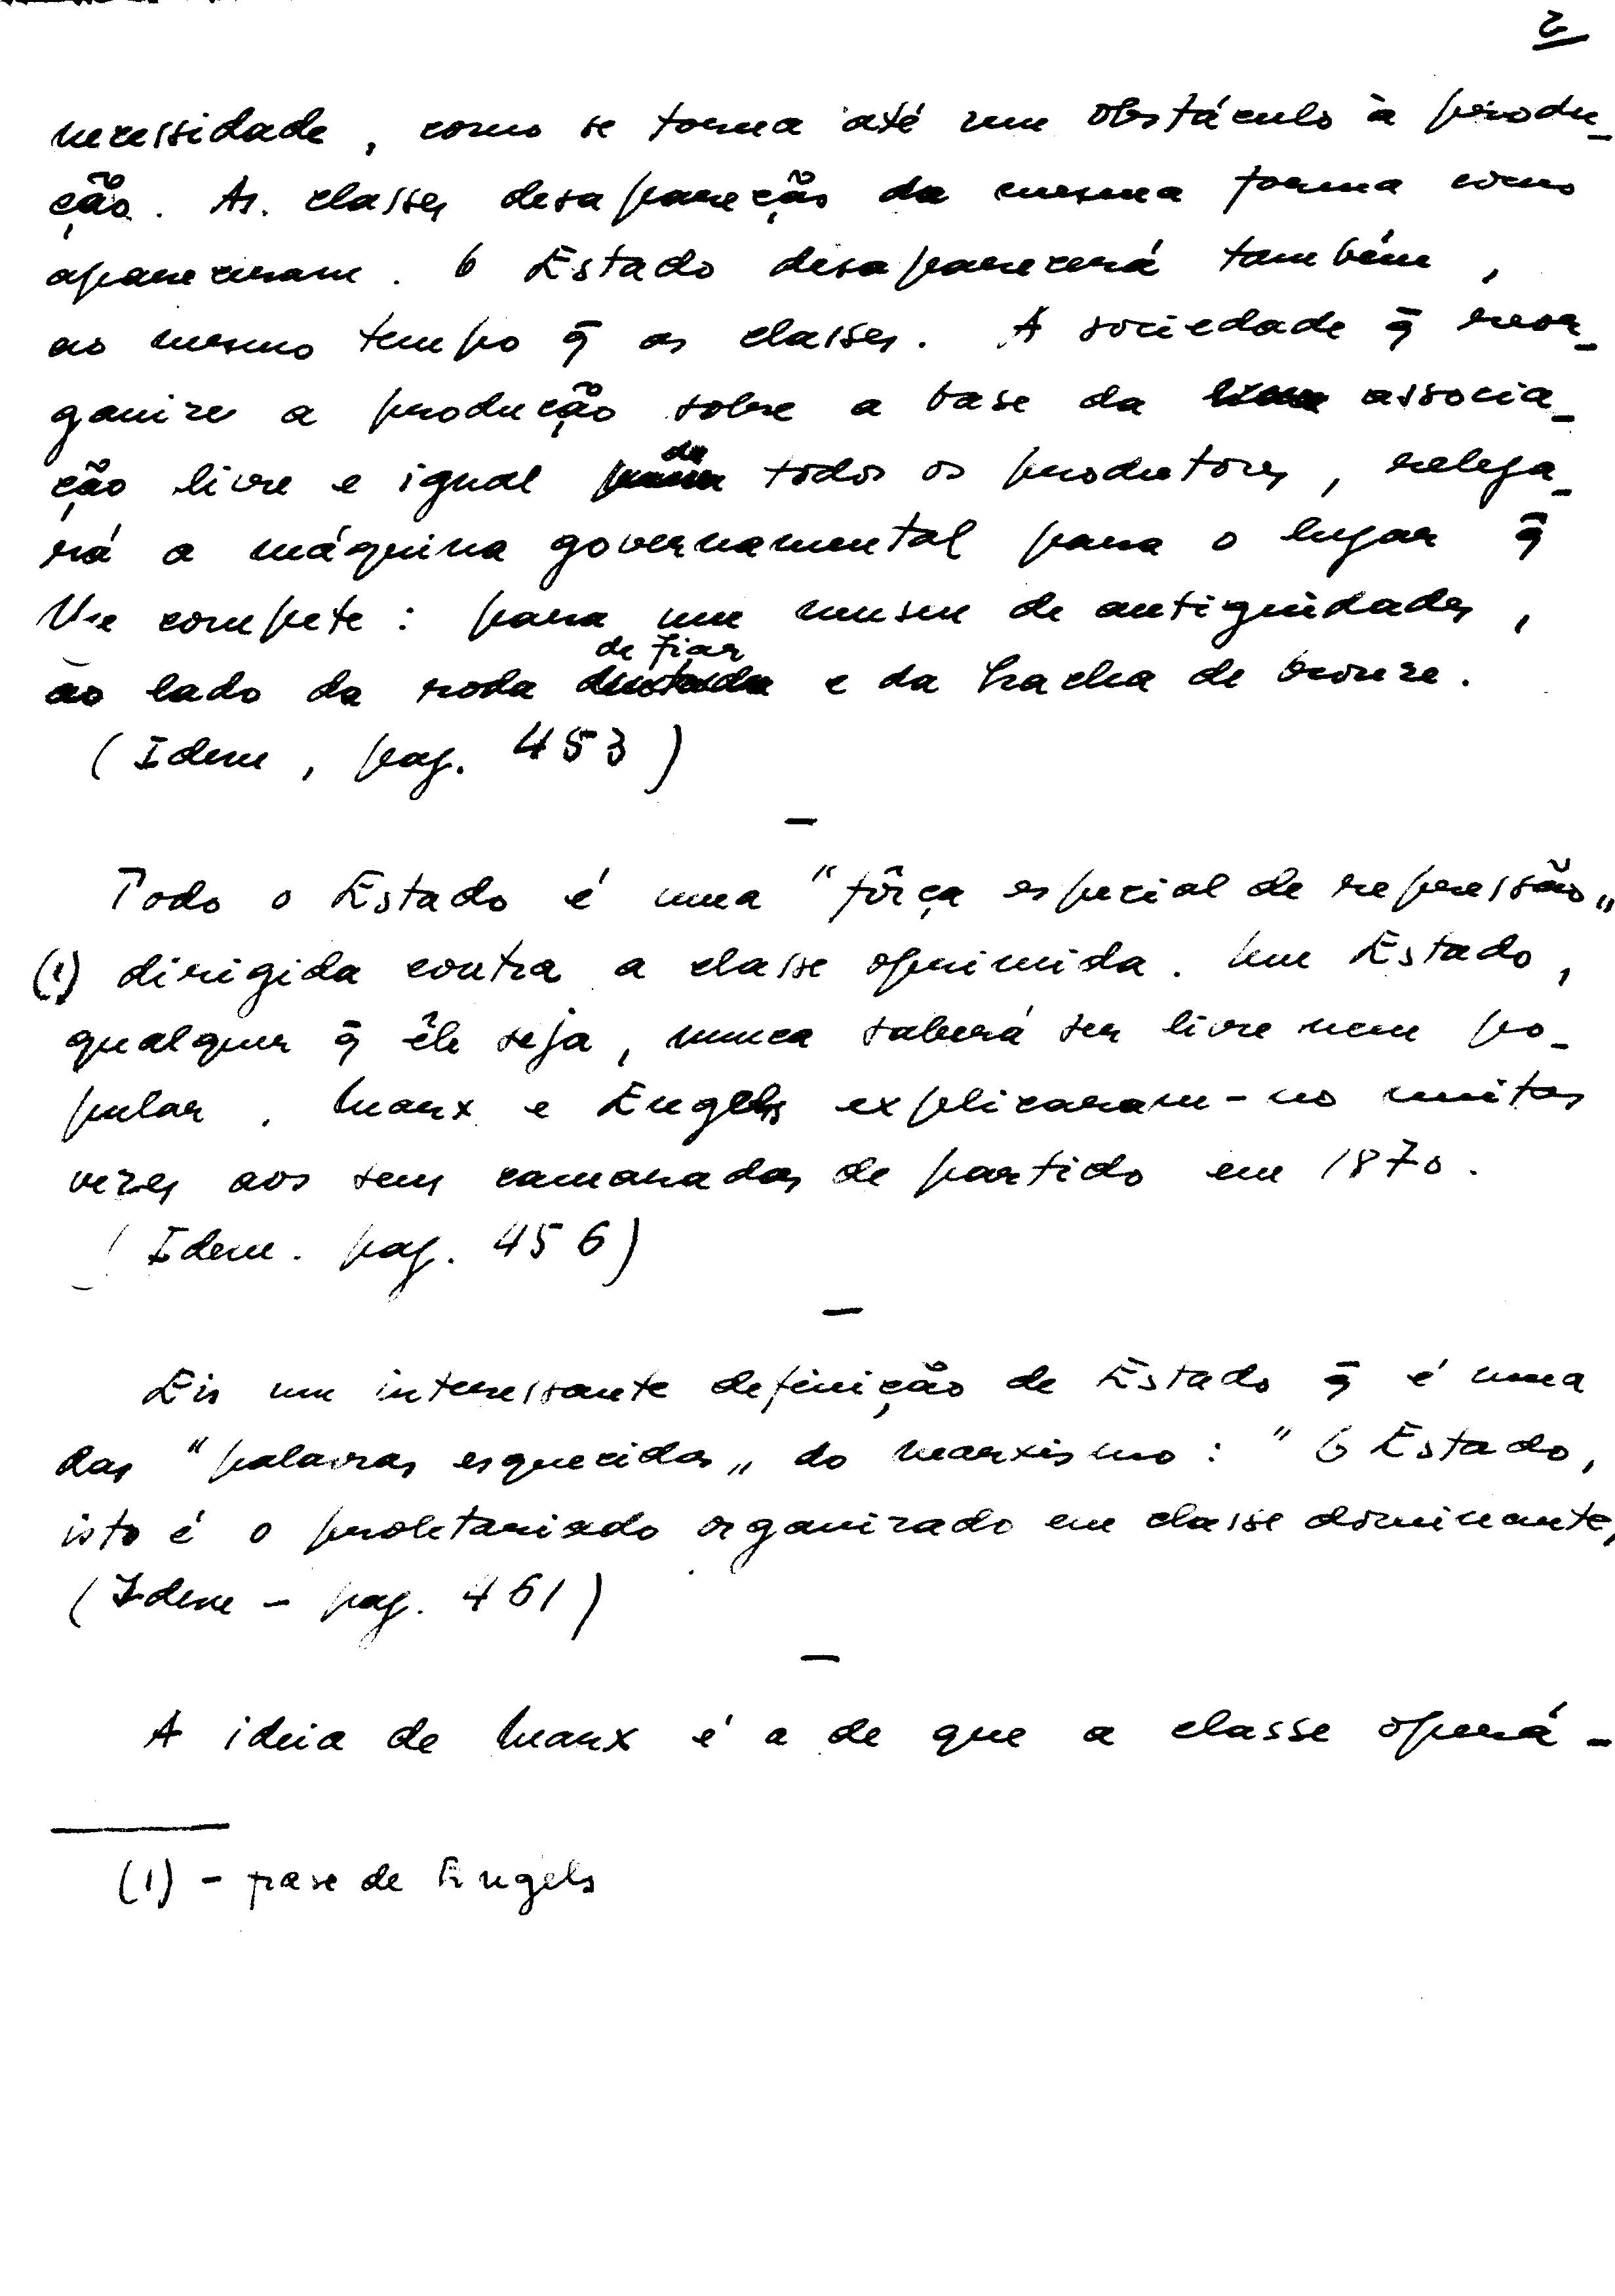 2
necessidade, como se torna até um obstáculo à produ-
ção. As. classes desapareção da mesma forma como
apareceram. O Estado desaparecerá também,
ao mesmo tempo q̄ as classes. A sociedade q̄ reor-
ganize a produção sobre a base da associa-
ção livre e igual de todos os produtores, relega-
rá a máquina governamental para o lugar q̄
lhe compete: para um museu de antigüidades,
ao lado da roda de fiar e da hacha de bronze.
(Idem, pag. 453)
—
Todo o Estado é uma "fôrça especial de repressão„
(1) dirigida contra a classe oprimida. Um Estado,
qualquer q̄ êle seja, nunca saberá ser livre nem po-
pular. Marx e Engels explicaram-no muitas
vezes aos seus camaradas de partido em 1870.
(Idem. pag. 456)
—
Eis um interessante definição de Estado q̄ é uma
das "palavras esquecidas„ do marxismo: "O Estado,
isto é o proletariado organizado em classe dominante„
(Idem - pag. 461)
—
A ideia de Marx é a de que a classe operá-
(1) - frase de Engels